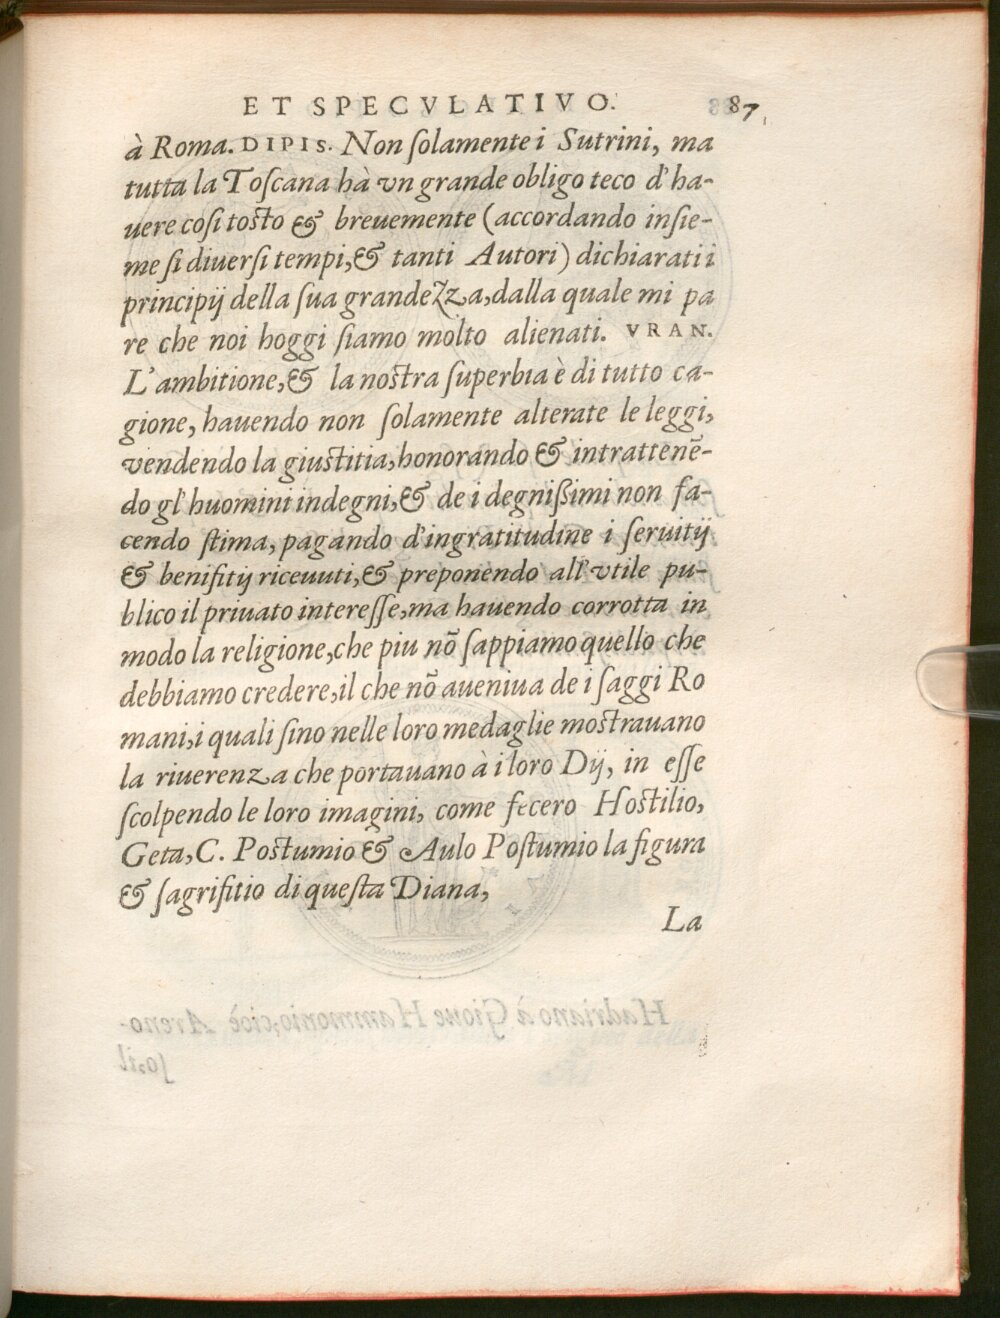 ET SPECVLATIVO. 87
à Roma. DIPIS. Non ſolamente i Sutrini, ma
tutta la Toſcana hà vn grande obligo teco d'ha-
uere coſi toſto & breuemente (accordando inſie-
me ſi diuerſi tempi, & tanti Autori) dichiarati i
principij della ſua grandezza, dalla quale mi pa
re che noi hoggi ſiamo molto alienati. VRAN.
L'ambitione, & la noſtra ſuperbia è di tutto ca-
gione, hauendo non ſolamente alterate le leggi,
vendendo la giuſtitia, honorando & intrattenē-
do gl'huomini indegni, & de i degniſſimi non fa-
cendo ſtima, pagando d'ingratitudine i ſeruitij
& benifitij riceuuti, & preponendo all'vtile pu-
blico il priuato intereſſe, ma hauendo corrotta in
modo la religione, che piu nō ſappiamo quello che
debbiamo credere, il che nō aueniua de i ſaggi Ro
mani, i quali ſino nelle loro medaglie moſtrauano
la riuerenza che portauano à i loro Dij, in eſſe
ſcolpendo le loro imagini, come fecero Hoſtilio,
Geta, C. Poſtumio & Aulo Poſtumio la figura
& ſagrifitio di queſta Diana,
La